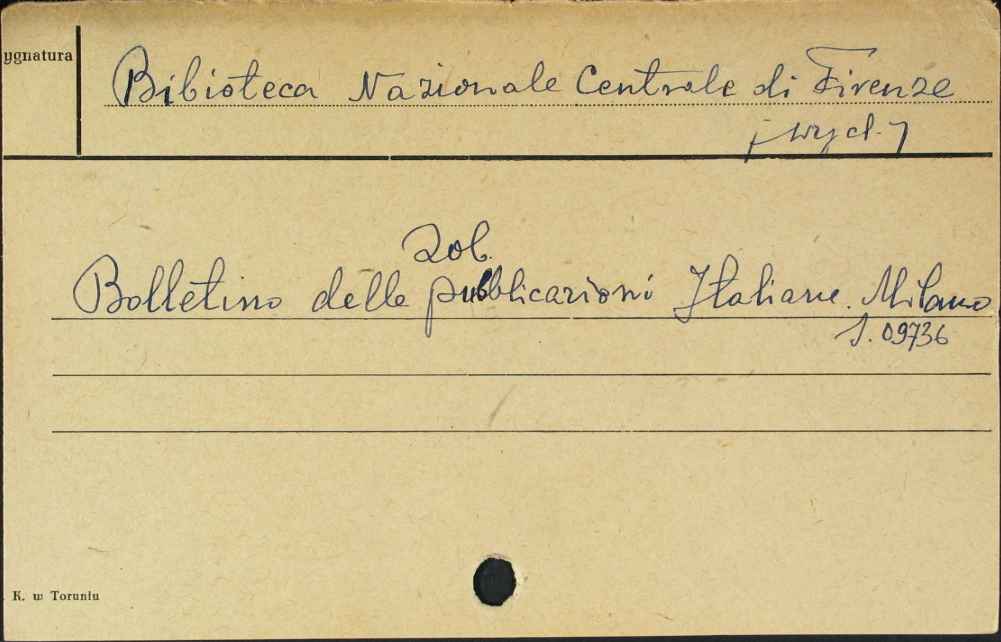 ygnatura
Bibioteca Nazionale Centrale di Firenze
[wycl.]
Zob.
Bolletino delle pubblicazioni Italiane. Milano
S. 09736
K. w Toruniu